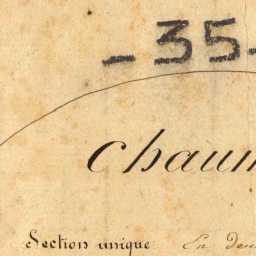 - 35 -
Chaum
Section unique En deu